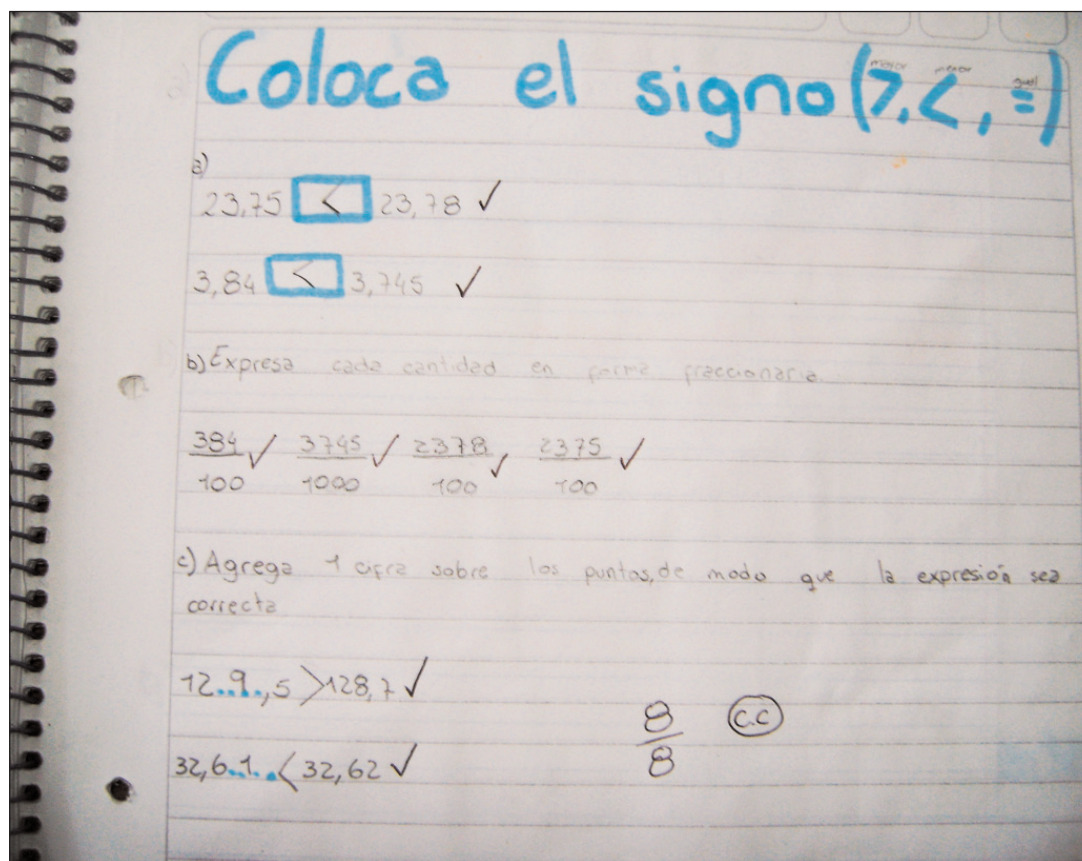 Coloca el signo (>, <, =)
mayor menor igual
a)
23,75 < 23,78 ✓
3,84 < 3,745 ✓
b) Expresa cada cantidad en forma fraccionaria.
384/100 ✓ 3745/1000 ✓ 2378/100 ✓ 2375/100 ✓
c) Agrega 1 cifra sobre los puntos, de modo que la expresión sea
correcta
12..9..,5 > 128,7 ✓
32,6..1.. < 32,62 ✓
8/8 C.C